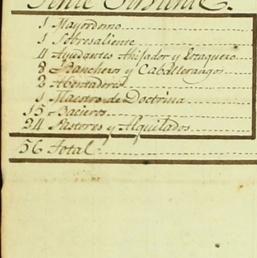 1 Mayordomo
1 Sobresaliente
4 Ayudantes Avisador y
8 Rancheros y Caballerangos
2 Aventadores
1 Maestro de Doctrina
15 Bacieros
24 Pastores y Alquilados
56 Total